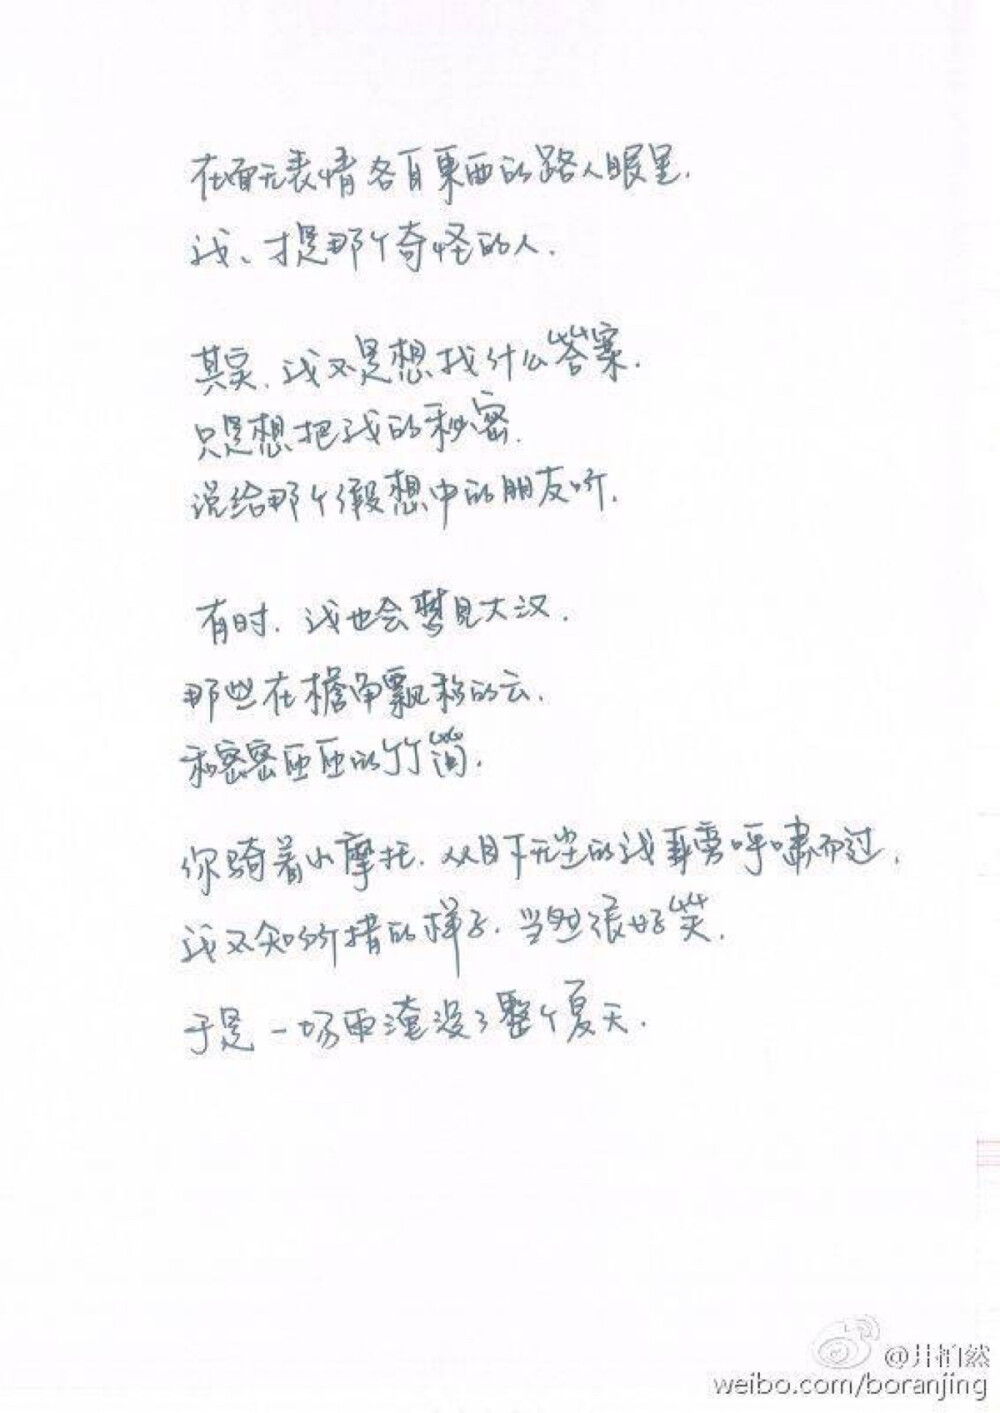 在面无表情各自東西的路人眼里.
我、才是那个奇怪的人.
其实、我不是想找什么答案.
只是想把我的秘密.
说给那个假想中的朋友听.
有时.我也会梦见大汉.
那些在檐角飘移的云.
和密密匝匝的竹简.
你骑着小摩托.从目下无尘的我耳旁呼啸而过.
我不知所措的样子.当然很好笑.
于是一场雨淹没了整个夏天.
@井柏然
weibo.com/boranjing